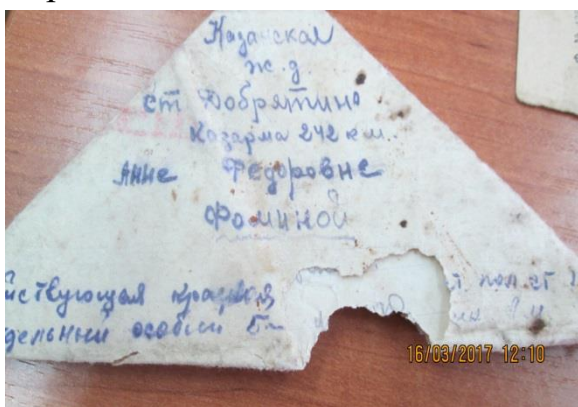 Казанская
ж.д
ст Добрятино
Казарма 242 км.
Анне Федоровне
Фоминой
йствующая красная пол ст
дельный особый б-
16/03/2017 12:10